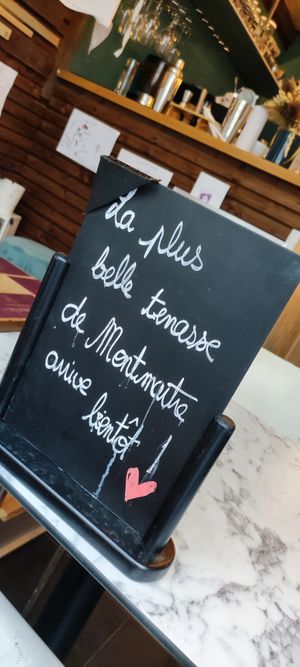 La plus
belle terrasse
de Montmartre
arrive
bientôt !